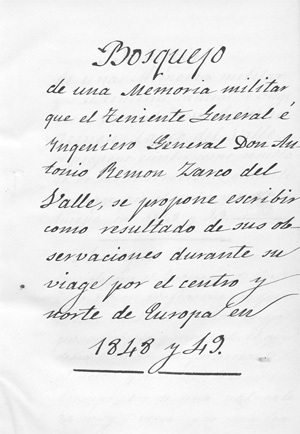 Bosquejo
de una Memoria militar
que el Teniente General é
Ingeniero General Don An
tonio Remon Zarco del
Valle, se propone escribir
como resultado de sus ob
servaciones durante su
viage por el centro y
norte de Europa en
1848 y 49.